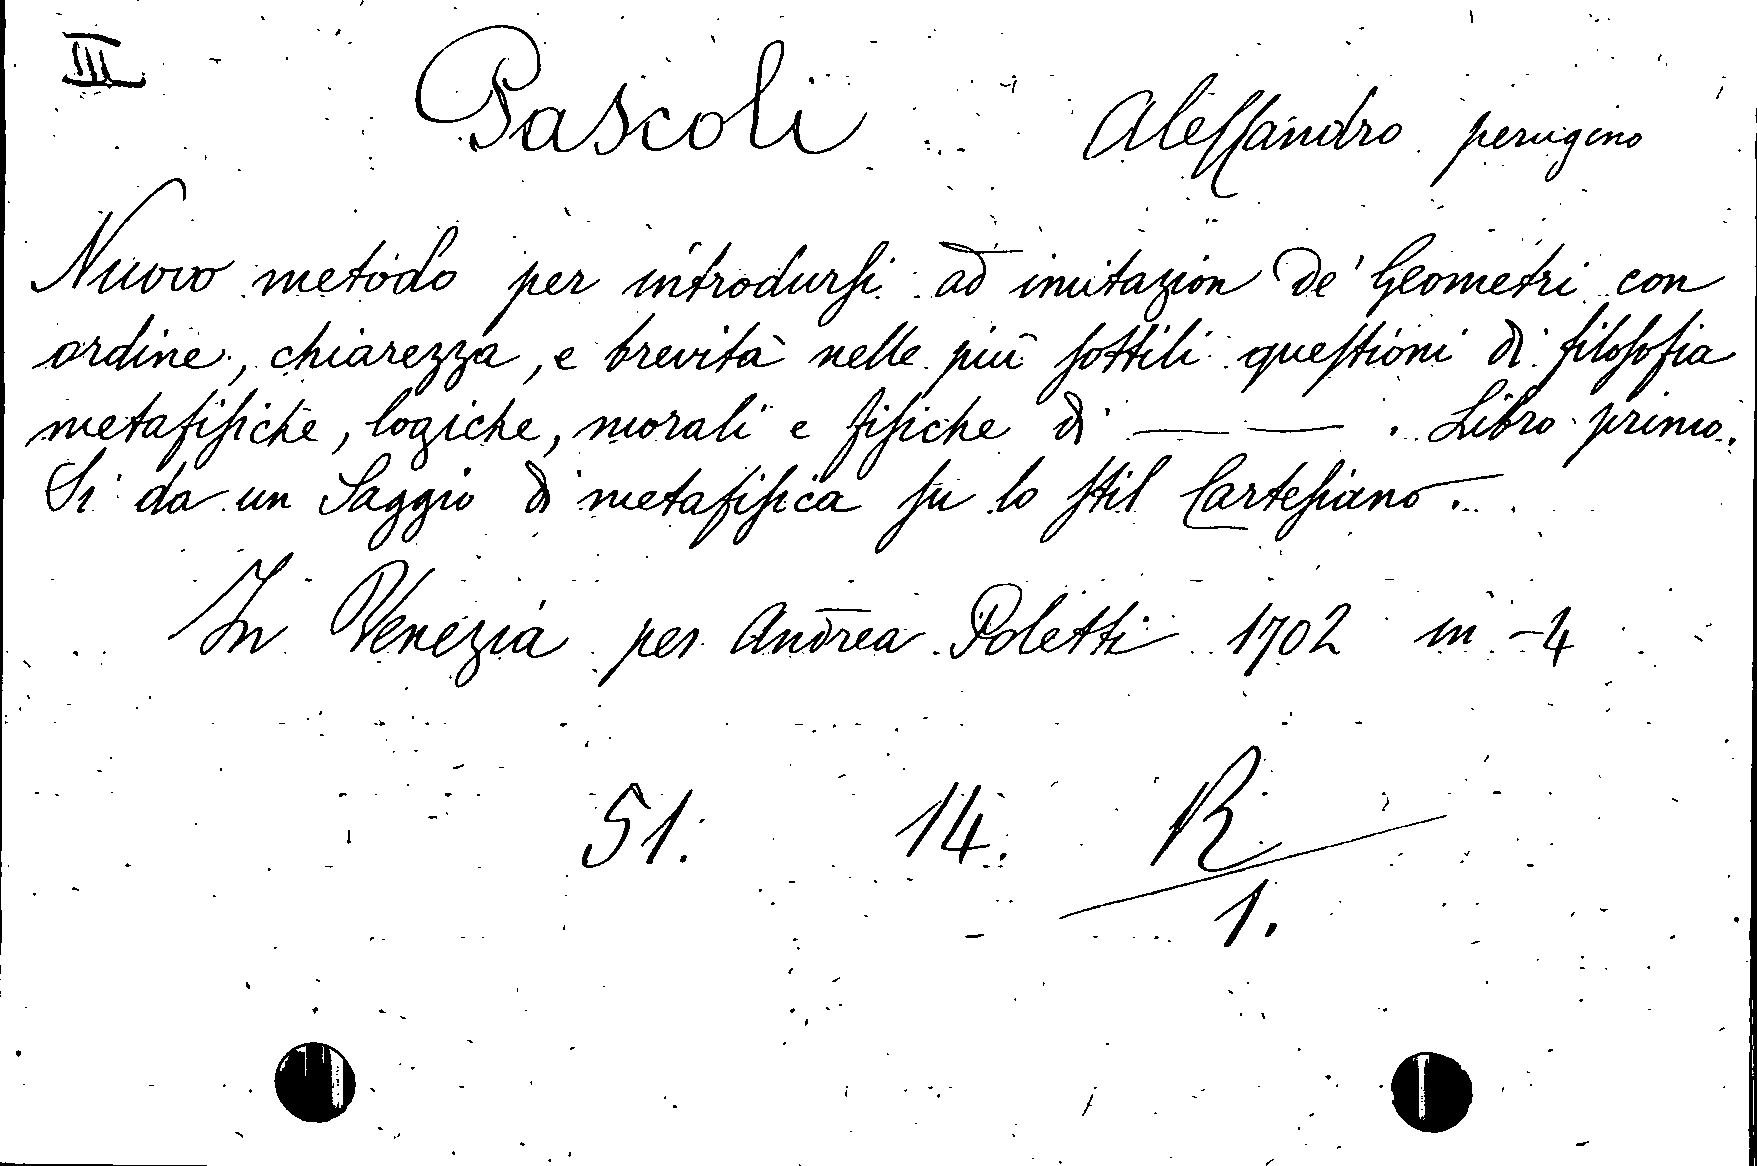 III
Pascoli Aleſſandro perugino
Nuovo metodo per introdurſi ad imitazion de' Geometri con
ordine, chiarezza, e brevità nelle più ſottili queſtioni di filoſofia
metafiſiche, logiche, morali e fiſiche di — — . Libro primo.
Si da un Saggio di metafiſica ſu lo ſtil Carteſiano.
In Venezia per Andrea Poletti 1702 in-4
51. 14. R
1.